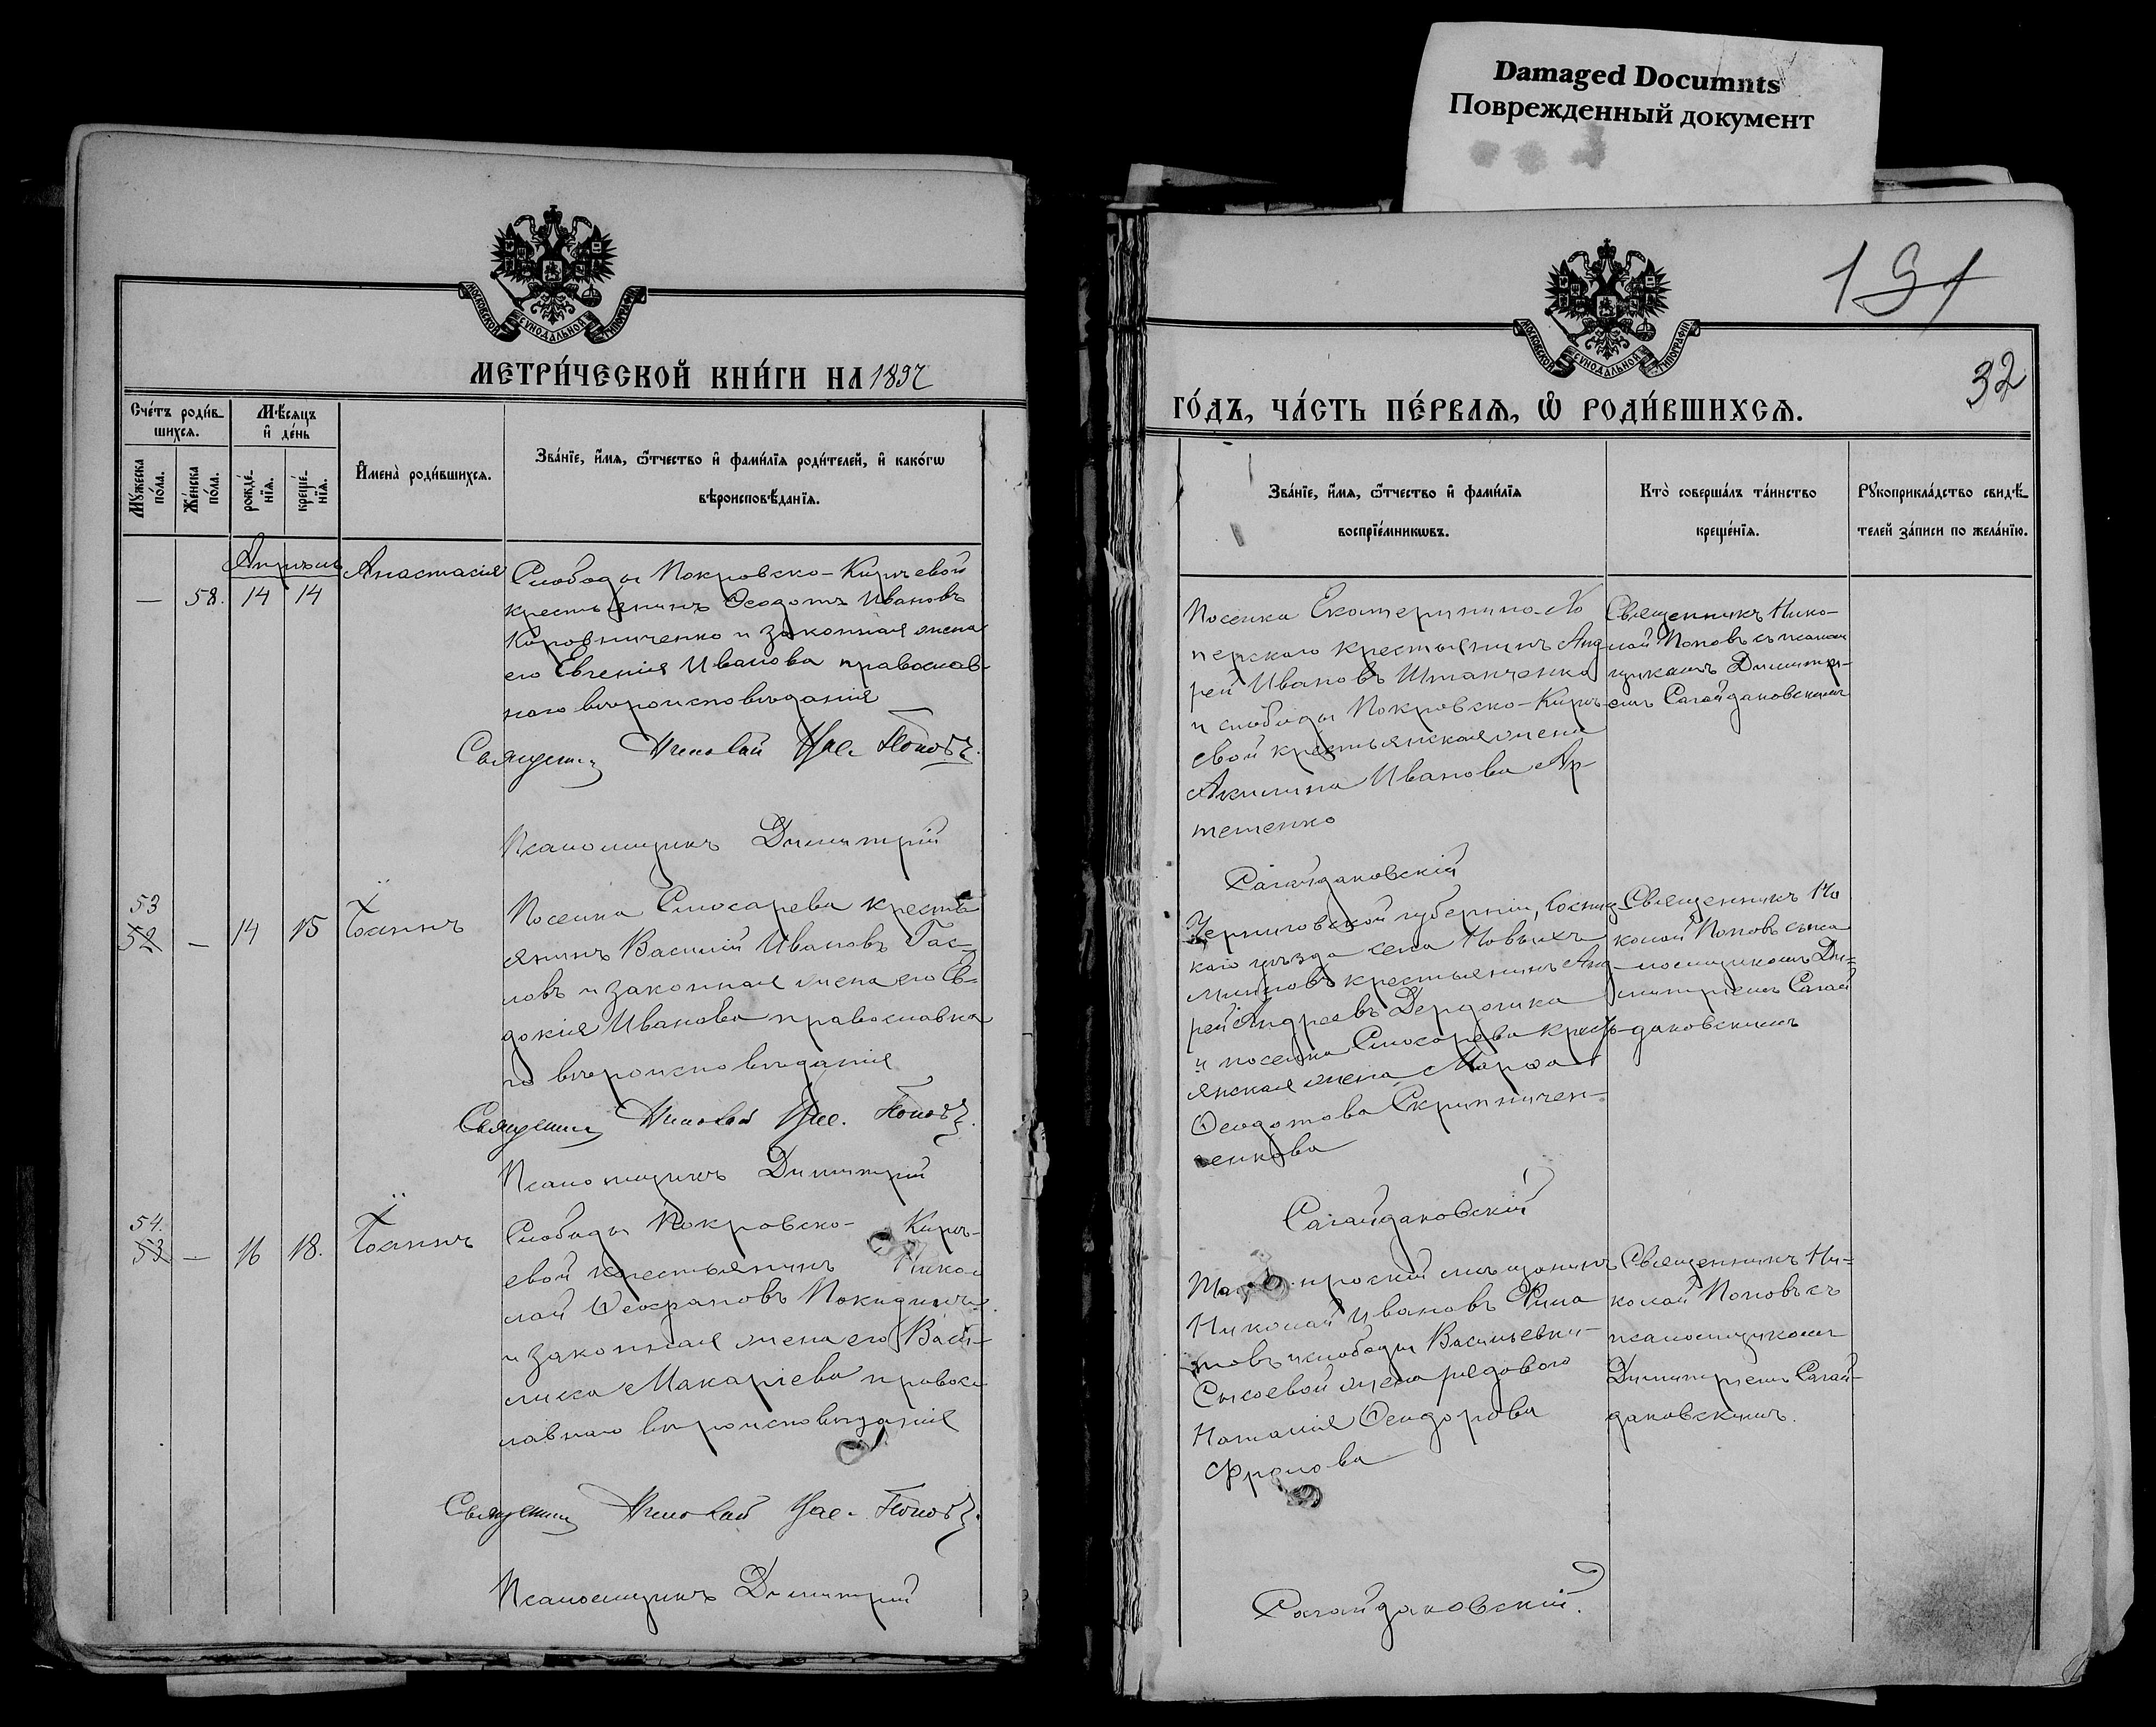 Damaged Documnts
Поврежденный документ
МОСКОВСКОЙ СУНОДАЛЬНОЙ ТИПОГРАФІИ
МЕТРИ́ЧЕСКОЙ КНИ́ГИ НА 1897
Счётъ роди́в-
шихся.
Мѣ́сяцъ
и҆ де́нь
Му́жеска
по́ла.
Же́нска
по́ла.
рожде́-
нїя.
креще́-
нїя.
И҆мена̀ роди́вшихся.
Зва́нїе, и҆́мя, ѻ҆́тчество и҆ фами́лїя роди́телей, и҆ како́гѡ
вѣроисповѣ́данїя.
Апрѣль
— 58. 14 14
Анастасія
Слободы Покровско-Кирѣевой
крестьянинъ Ѳеодотъ Ивановъ
и законная жена
его Евгенія Иванова православ-
наго вѣроисповѣданія
Священн. Николай Поповъ.
Псаломщикъ Димитрій
53
52 — 14 15
Іоаннъ
Поселка Слюсарева кресть
янинъ Василій Ивановъ Гас-
ловъ и законная жена его Ев-
докія Иванова православна
го вѣроисповѣданія
Священн. Николай Поповъ.
Псаломщикъ Димитрій
54.
53 — 16 18.
Іоаннъ
Слободы Покровско- Кирѣ-
евой крестьянинъ Нико-
лай
и законная жена его Васи-
лиса Макаріева правос
лавнаго вѣроисповѣданія
Священн. Николай Поповъ.
Псаломщикъ Димитрій
191
МОСКОВСКОЙ СУНОДАЛЬНОЙ ТИПОГРАФІИ
32
ГО́ДЪ, ЧА́СТЬ ПЕ́РВАЯ, Ѡ҆ РОДИ́ВШИХСЯ.
Зва́нїе, и҆́мя, ѻ҆́тчество и҆ фами́лїя
воспрїе́мникѡвъ.
Кто̀ соверша́лъ та́инство
креще́нїя.
Рꙋкоприкла́дство свидѣ́-
телей за́писи по жела́нїю.
Поселка Екатеринино-Хо
перскаго крестьянинъ Анд
рей Ивановъ Штанченко
и слободы Покровско-Кирѣ-
евой крестьянская жена
Акилина Иванова Ар-
тешенко
Священникъ Нико-
лай Поповъ съ псалом
щикомъ Димитрі-
емъ Сагайдаковскимъ
Сагайдаковскій
Черниговской губерніи, Сосниц-
каго уѣзда села Новыхъ
Млиновъ крестьянинъ Анд-
рей Андреевъ Дердолика
и поселка Слюсарева кресть-
янская жена Марѳа
Ѳеодотова Скрипничен-
ченкова
Священникъ Ни
колай Поповъ съ пса
ломщикомъ Ди-
митріемъ Сагай
даковскимъ
Сагайдаковскій
мѣщанинъ
Николай Ивановъ Фила
товъ и слободы Васильевки-
Сысоевой жена рядового
Наталія Ѳеодорова
Фролова
Священникъ Ни-
колай Поповъ съ
псаломщикомъ
Димитріемъ Сагай-
даковскимъ.
Сагайдаковскій.